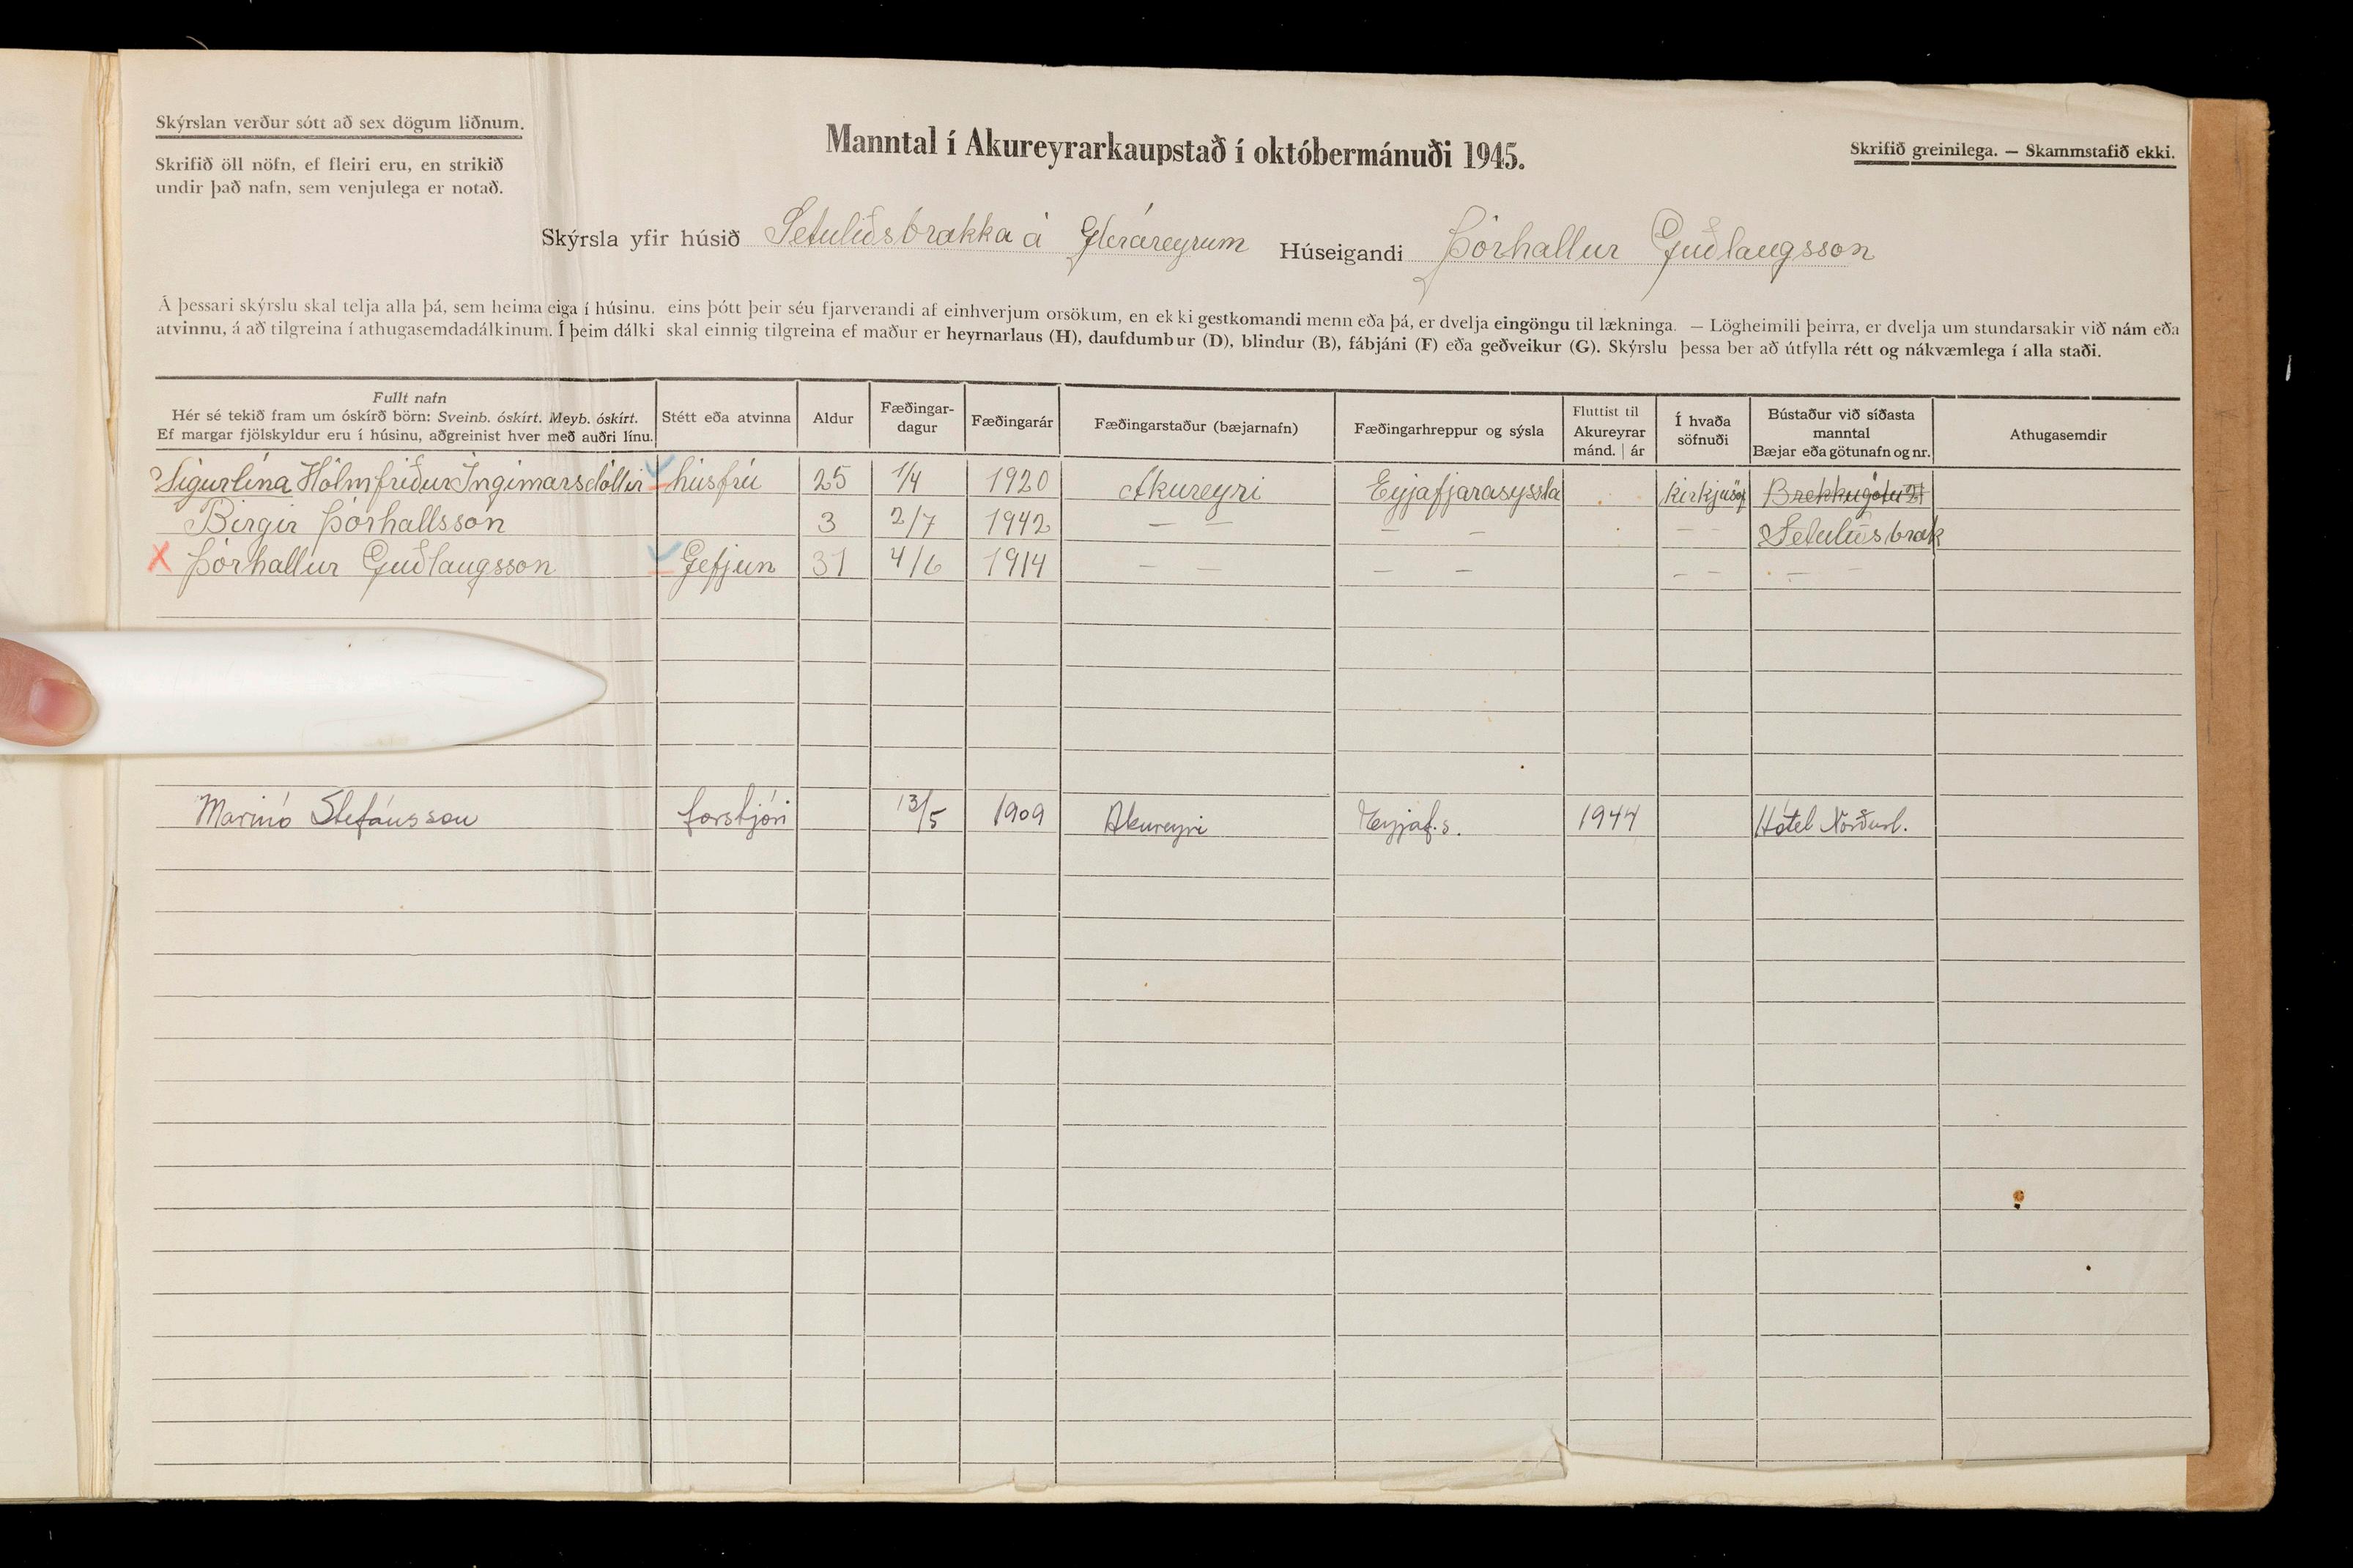 Skýrslan verður sótt að sex dögum liðnum.
Skrifið öll nöfn, ef fleiri eru, en strikið
undir það nafn, sem venjulega er notað.
Manntal í Akureyrarkaupstað í októbermánuði 1945.
Skrifið greinilega. — Skammstafið ekki.
Skýrsla yfir húsið Setuliðsbrakka á Gleráreyrum Húseigandi Þórhallur Guðlaugsson
Á þessari skýrslu skal telja alla þá, sem heima eiga í húsinu, eins þótt þeir séu fjarverandi af einhverjum orsökum, en ekki gestkomandi menn eða þá, er dvelja eingöngu til lækninga. — Lögheimili þeirra, er dvelja um stundarsakir við nám eða
atvinnu, á að tilgreina í athugasemdadálkinum. Í þeim dálki skal einnig tilgreina ef maður er heyrnarlaus (H), daufdumbur (D), blindur (B), fábjáni (F) eða geðveikur (G). Skýrslu þessa ber að útfylla rétt og nákvæmlega í alla staði.
Fullt nafn
Hér sé tekið fram um óskírð börn: Sveinb. óskírt. Meyb. óskírt.
Ef margar fjölskyldur eru í húsinu, aðgreinist hver með auðri línu.
Stétt eða atvinna
Aldur
Fæðingar-
dagur
Fæðingarár
Fæðingarstaður (bæjarnafn)
Fæðingarhreppur og sýsla
Fluttist til
Akureyrar
mánd. | ár
Í hvaða
söfnuði
Bústaður við síðasta
manntal
Bæjar eða götunafn og nr.
Athugasemdir
Sigurlína Hólmfríður Ingimarsdóttir húsfrú 25 1/4 1920 Akureyri Eyjafjarasyssla kirkjusöf Brekkugötu 21
Birgir Þórhallsson 3 2/7 1942 — — — — — — Setuliðsbrak
X Þórhallur Guðlaugsson Gefjun 31 4/6 1914 — — — — — — — —
Marinó Stefánsson forstjóri 13/5 1909 Akureyri Eyjaf.s. 1944 Hótel Norðurl.